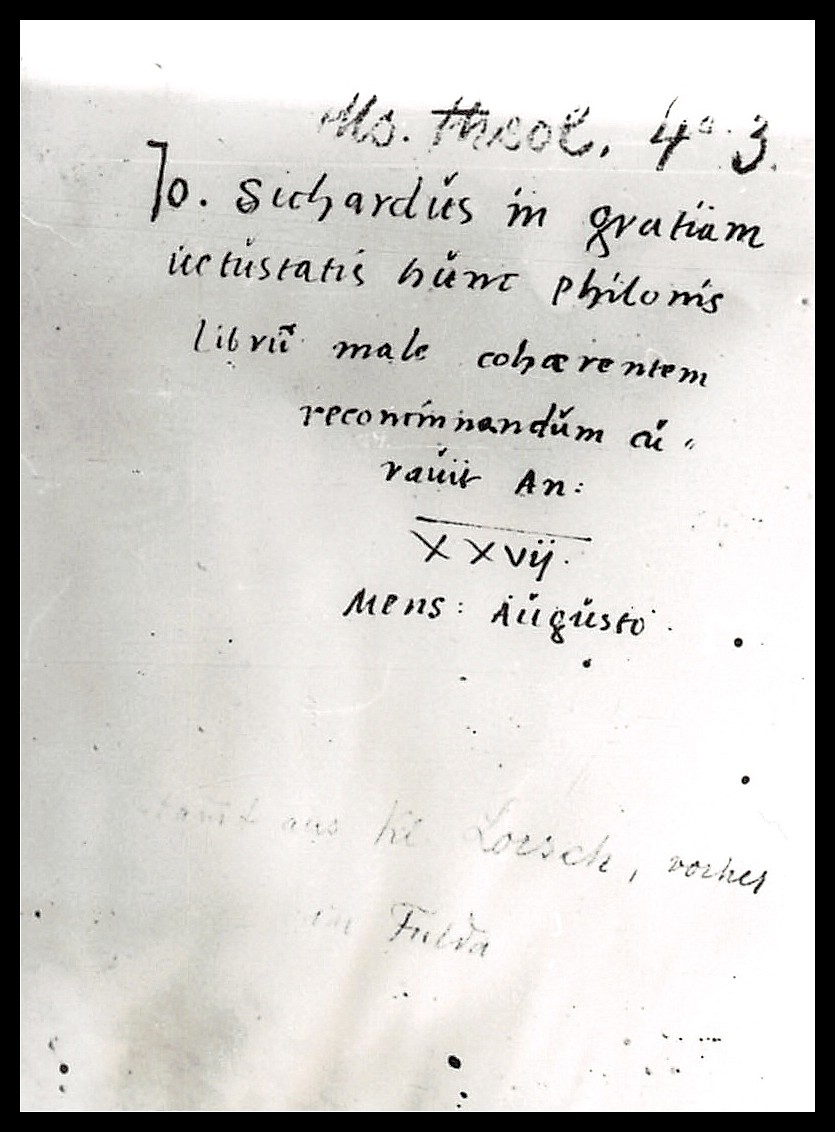 Ms. theol. 4º 3.
Jo. Sichardŭs in gratiam
uetŭstatis hŭnc Philonis
librũ male cohærentem
reconcinnandŭm cŭ„
rauit An:
XXvij.
Mens: Aŭgŭsto.
stam̅t aus Kl. Lorsch, vorher
in Fulda